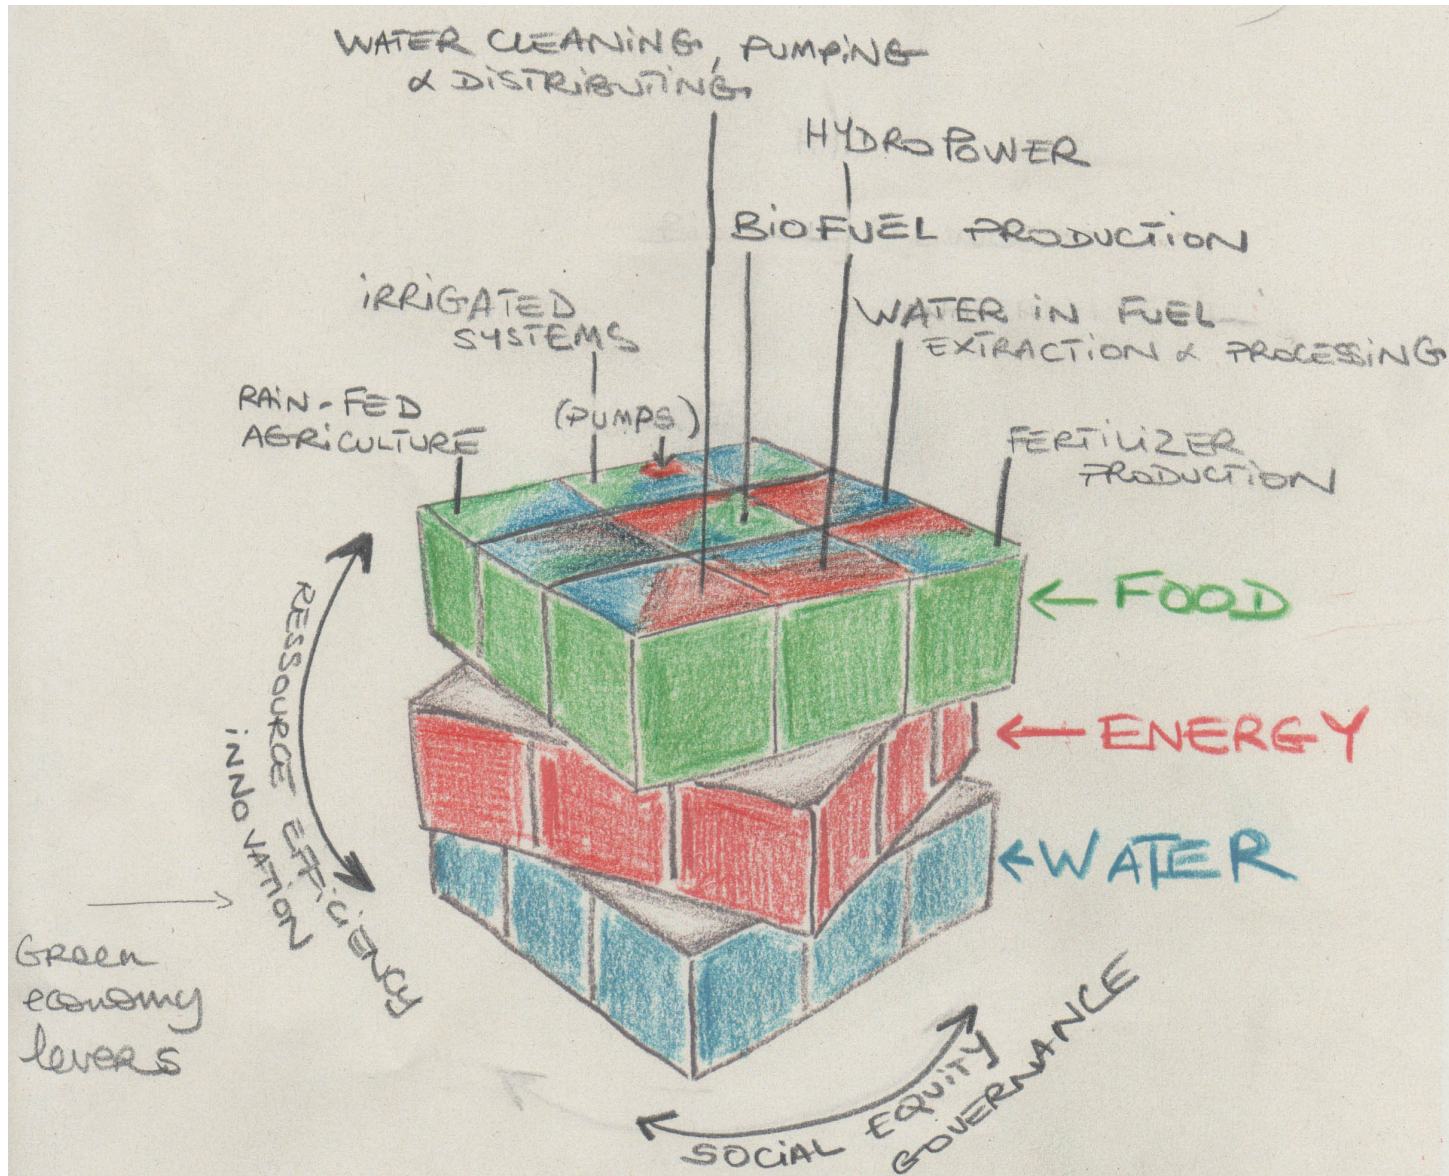 WATER CLEANING, PUMPING
& DISTRIBUTING
HYDROPOWER
BIOFUEL PRODUCTION
IRRIGATED
SYSTEMS
WATER IN FUEL
EXTRACTION & PROCESSING
RAIN-FED
AGRICULTURE
(PUMPS)
FERTILIZER
PRODUCTION
FOOD
ENERGY
WATER
RESSOURCE EFFICIENCY
INNOVATION
Green
economy
levers
SOCIAL EQUITY
GOVERNANCE